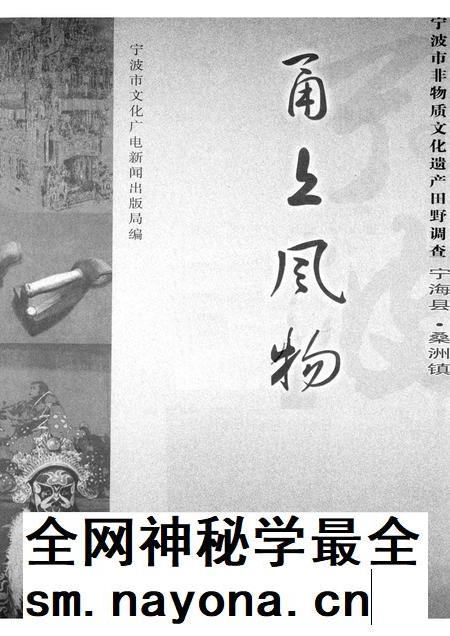 宁波市非物质文化遗产田野调查
宁海县·桑洲镇
甬上风物
宁波市文化广电新闻出版局编
全网神秘学最全
sm.nayona.cn